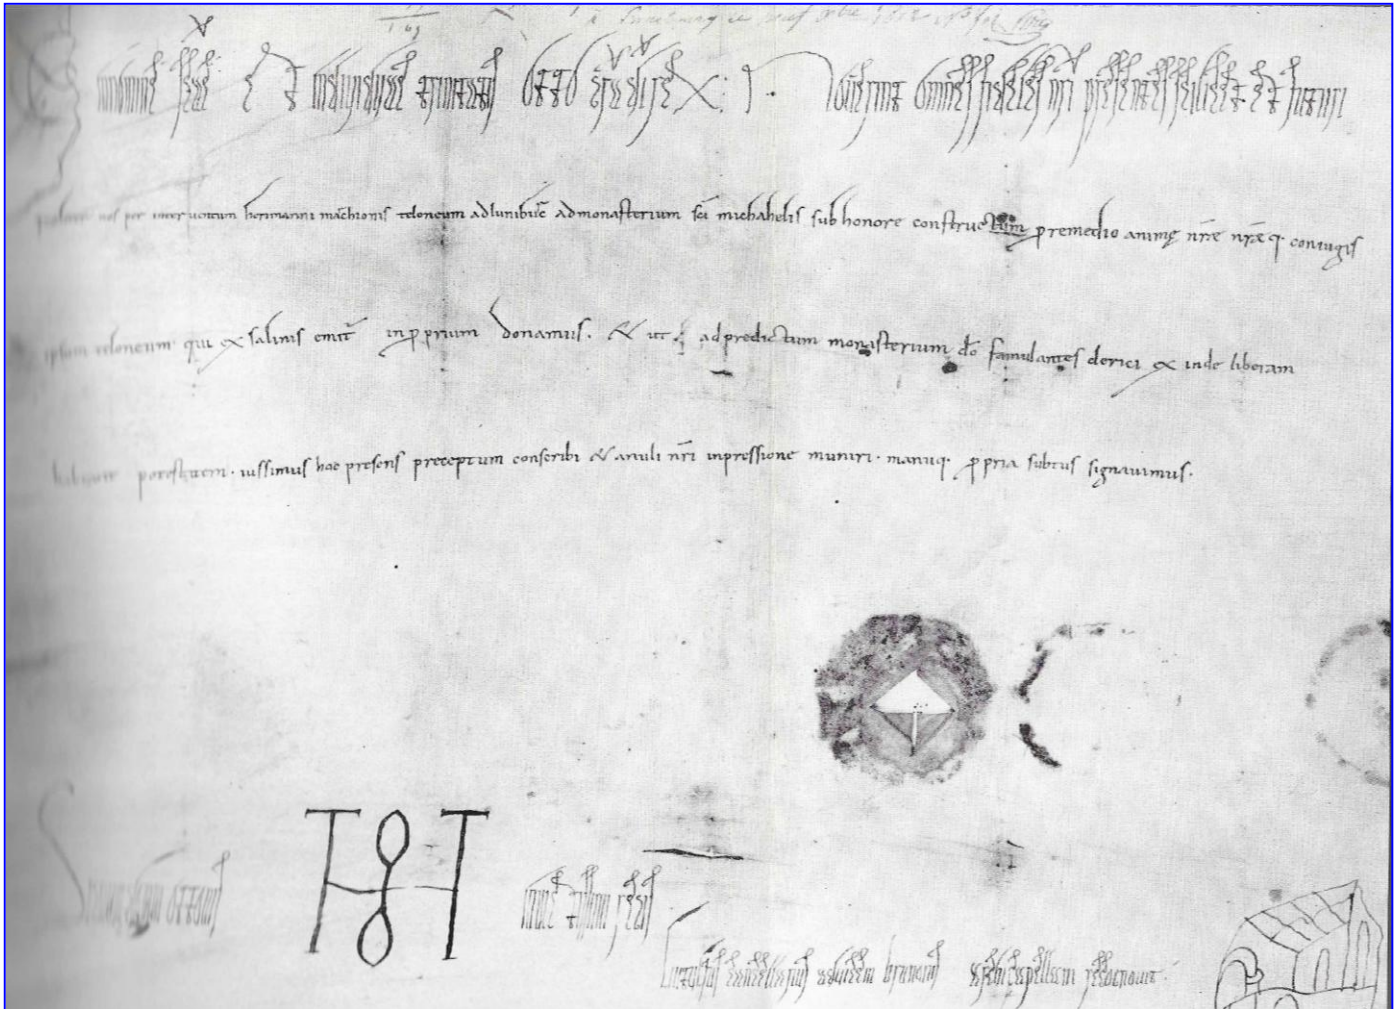 In nomine sce et individue trinitatis Otto Noverint omnes fideles nri presentes scilicet et futuri
nos per interventum herimanni machionis teloneum adluniburc admonasterium sci michahelis sub honore constructum p remedio animę nrae nraeq. coniugis
ipsum teloneum qui ex salinis emit in pprium donamus. & ut ad predictum monasterium do famulantes clerici ex inde liberam
habeant potestatem. iussimus hoc presens preceptum conscribi & anuli nri inpressione muniri. manuq. ppria subtus signavimus.
Signum domni ottonis invictissimi regis
Liutolfus cancellarius ad vicem brunonis archicapellani recognovit